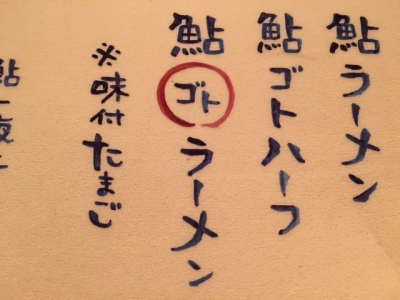 鮎ラーメン
鮎ゴトハーフ
鮎ゴトラーメン
※味付たまご
鮎一夜